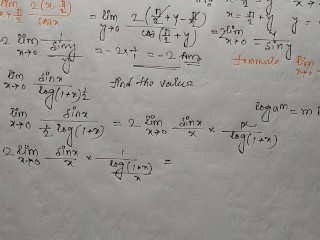 lim x→π/2 2(x-π/2) = lim y→0 2(π/2+y-π/2) / cos(π/2+y) = 2 lim x→0 y / -sin y
2 lim x→0 1 / sin y / y = -2x1 = -2 Ans
formula lim
lim x→0 sin x / log(1+x)^1/2 find the value
log a^m = m
lim x→0 sin x / 1/2 log(1+x) = 2 lim x→0 sin x / x × x / log(1+x)
2 lim x→0 sin x / x × 1 / log(1+x) / x =